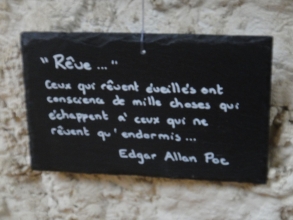 "Rêve ..."
Ceux qui rêvent éveillés ont
conscience de mille choses qui
échappent à ceux qui ne
rêvent qu'endormis ...
Edgar Allan Poe